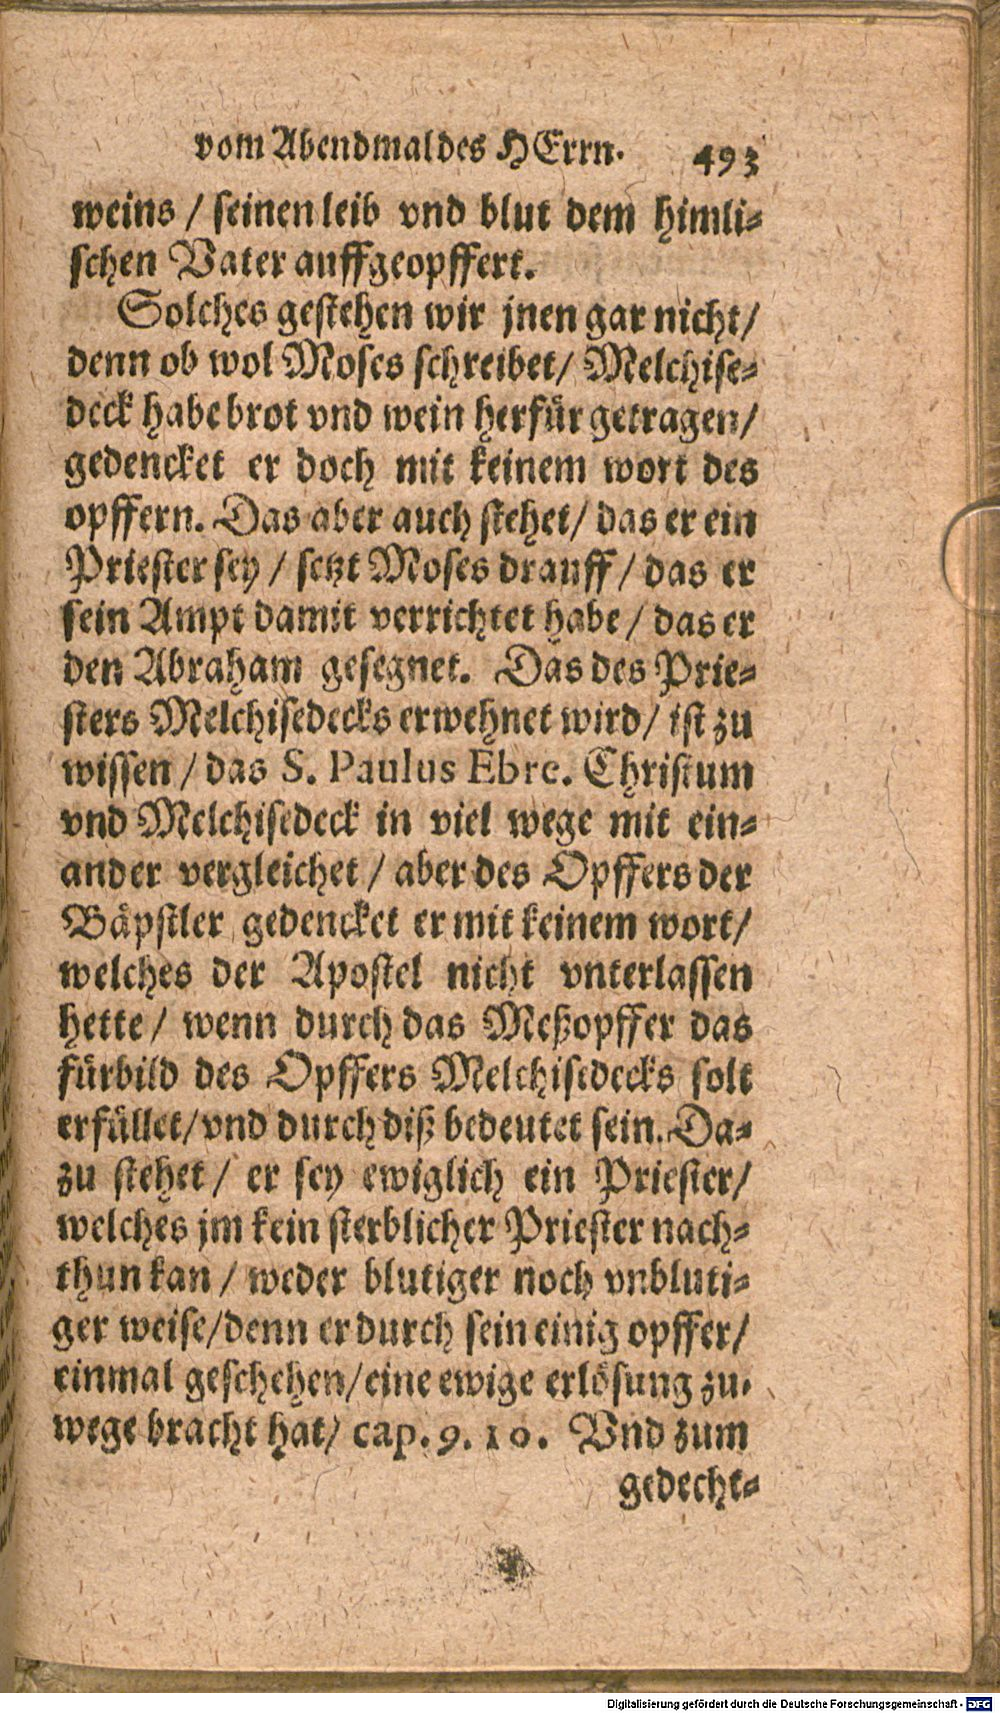 vom Abendmal des HErrn. 493
weins / seinen leib vnd blut dem himli-
schen Vater auffgeopffert.
Solches gestehen wir jnen gar nicht/
denn ob wol Moses schreibet/ Melchise-
deck habe brot vnd wein herfür getragen/
gedencket er doch mit keinem wort des
opffern. Das aber auch stehet/ das er ein
Priester sey / setzt Moses drauff / das er
sein Ampt damit verrichtet habe / das er
den Abraham gesegnet. Das des Prie-
sters Melchisedecks erwehnet wird/ ist zu
wissen / das S. Paulus Ebre. Christum
vnd Melchisedeck in viel wege mit ein-
ander vergleichet / aber des Opffers der
Bäpstler gedencket er mit keinem wort/
welches der Apostel nicht vnterlassen
hette / wenn durch das Meßopffer das
fürbild des Opffers Melchisedecks solt
erfüllet/ vnd durch diß bedeutet sein. Da-
zu stehet / er sey ewiglich ein Priester/
welches jm kein sterblicher Priester nach-
thun kan / weder blutiger noch vnbluti-
ger weise/ denn er durch sein einig opffer/
einmal geschehen/ eine ewige erlösung zu-
wege bracht hat/ cap. 9. 10. Vnd zum
gedecht-
Digitalisierung gefördert durch die Deutsche Forschungsgemeinschaft - DFG